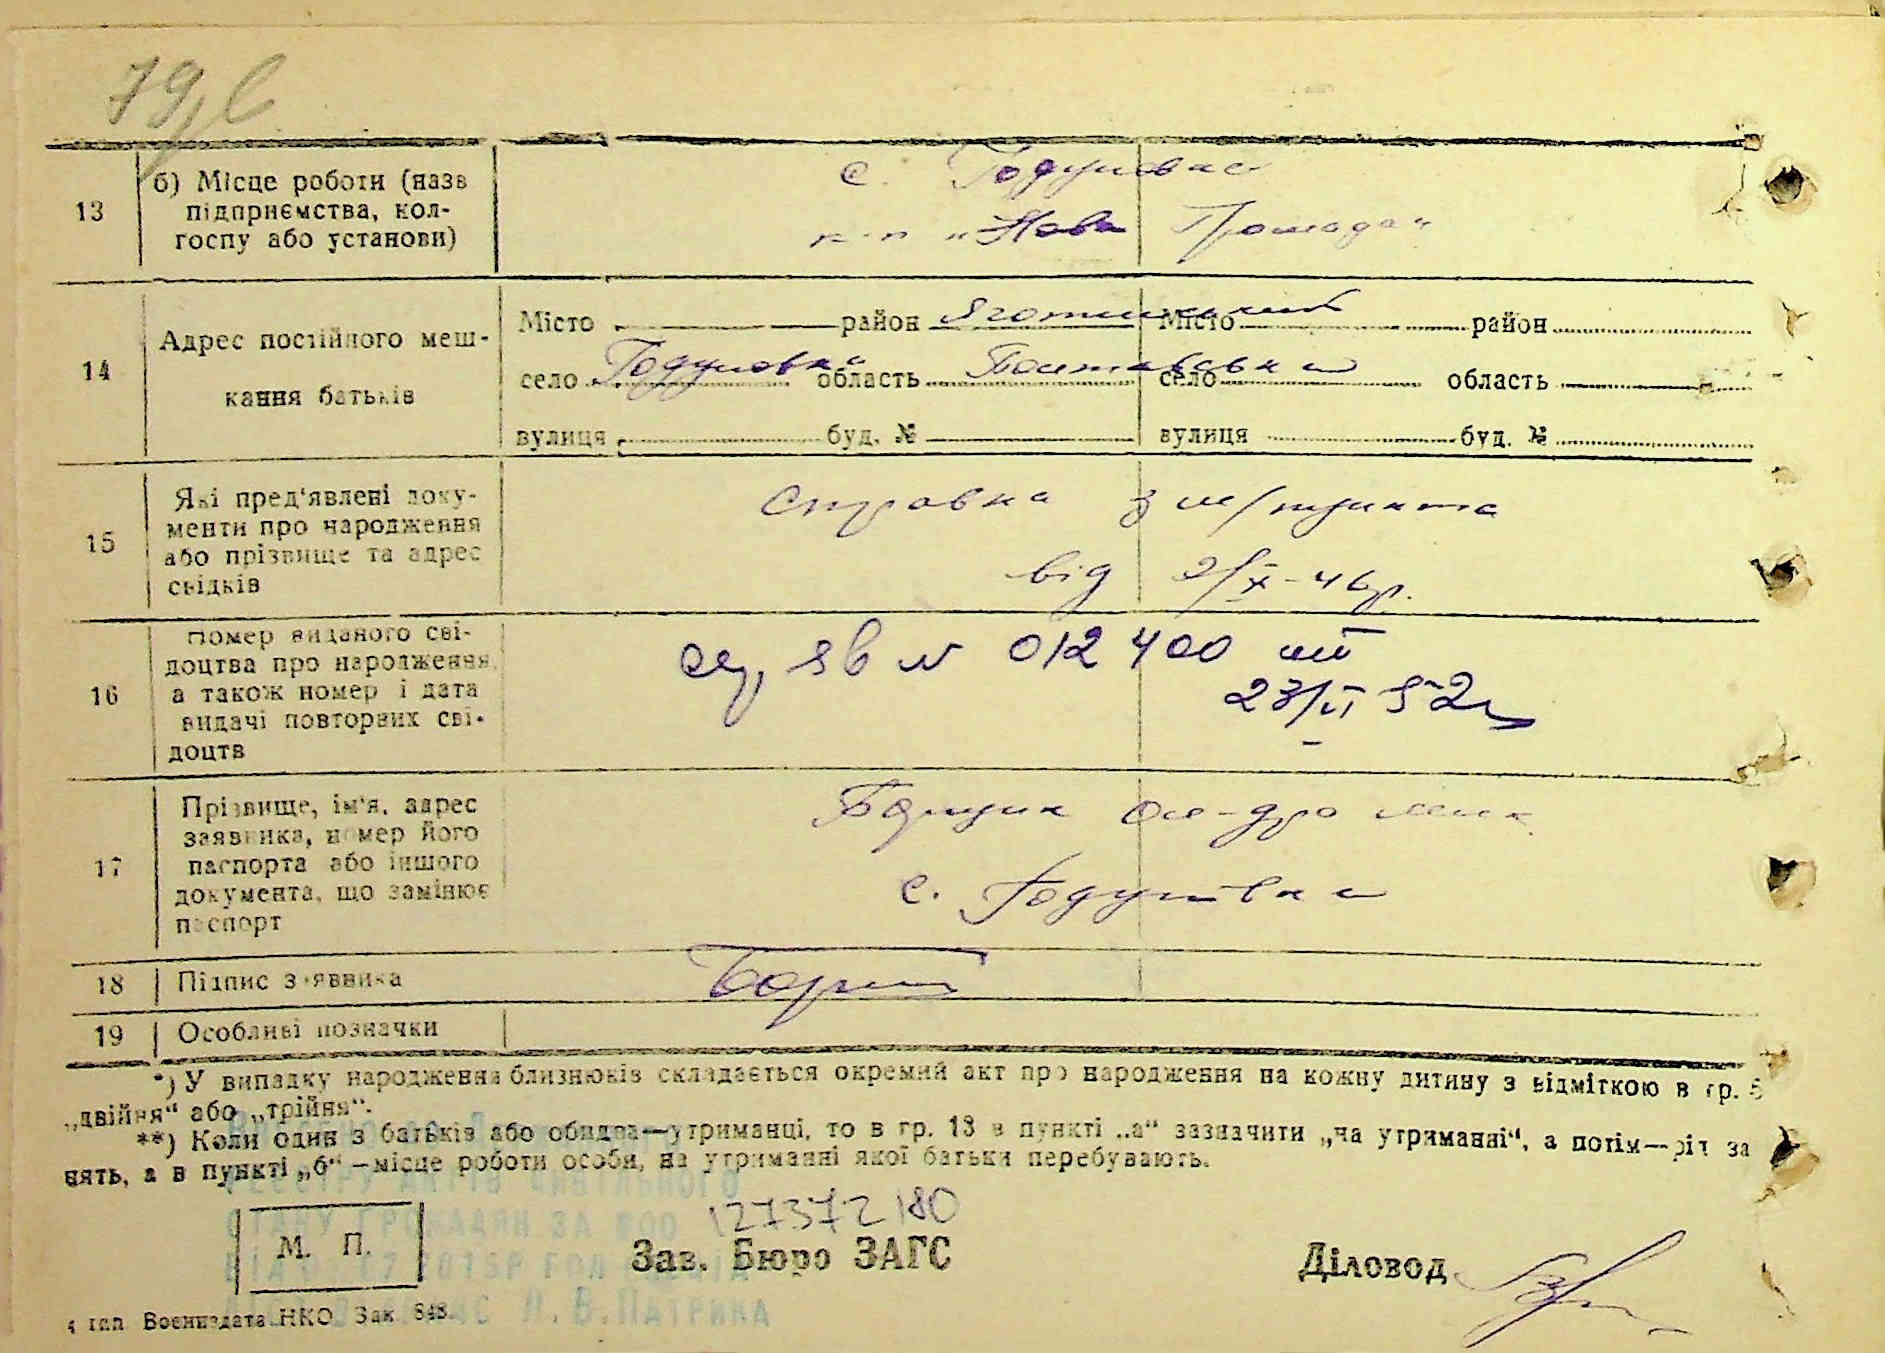 79
13
б) Місце роботи (назв
підприємства, кол-
госпу або установи)
с. Годунівка
к-п „Нова Громада“
14
Адрес постійного меш-
кання батьків
Місто район Яготинський Місто район
село Годунівка область Полтавська село область
вулиця буд. № вулиця буд. №
15
Які пред'явлені доку-
менти про народження
або прізвище та адрес
свідків
справка з м/пункта
від 2/X-46р.
16
Номер виданого сві-
доцтва про народження,
а також номер і дата
видачі повторних сві-
доцтв
ЯВ № 012400
23/VI 52
17
Прізвище, ім'я, адрес
заявника, номер його
паспорта або іншого
документа, що замінює
паспорт
с. Годунівка
18
Підпис заявника
19
Особливі позначки
*) У випадку народження близнюків складається окремий акт про народження на кожну дитину з відміткою в гр. 5
„двійня“ або „трійня“.
**) Коли один з батьків або обидва—утриманці, то в гр. 13 в пункті „а“ зазначити „на утриманні“, а потім—рід за
нять, а в пункті „б“—місце роботи особи, на утриманні якої батьки перебувають.
РЕЄСТРУ АКТІВ ЦИВІЛЬНОГО
СТАНУ ГРОМАДЯН ЗА
127372180
М. П.
Зав. Бюро ЗАГС
Діловод
2015Р
Л.В.ПАТРИКА
тип Воениздата НКО Зак 848.